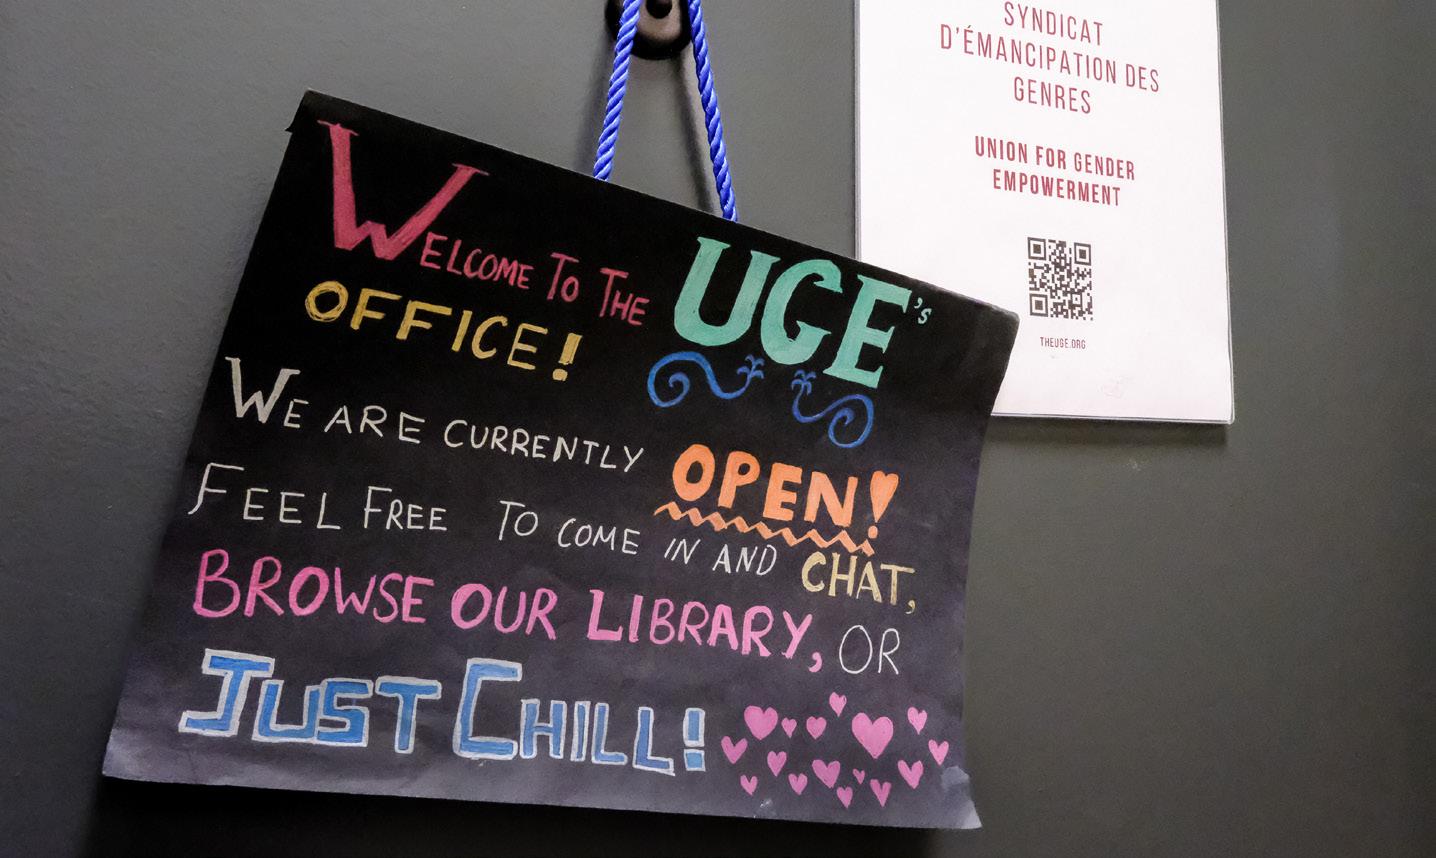 WELCOME TO THE UGE's
OFFICE!
WE ARE CURRENTLY OPEN!
FEEL FREE TO COME IN AND CHAT,
BROWSE OUR LIBRARY, OR
JUST CHILL!
SYNDICAT
D'ÉMANCIPATION DES
GENRES
UNION FOR GENDER
EMPOWERMENT
THEUGE.ORG